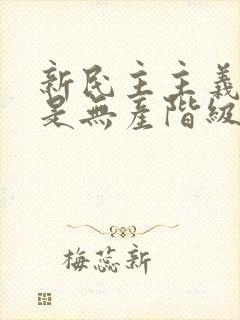 新民主主義
是無產階級
梅蕊新